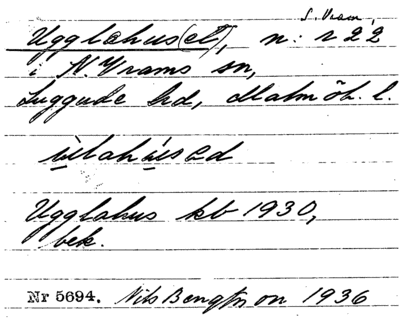 S. Vram,
Ugglahus(et), n: r 22
i N. Vrams sn,
Luggude hd, Malmöh. l.
ùlahùsəd
Ugglahus kb 1930,
bek.
Nr 5694. Nils Bengtson 1936